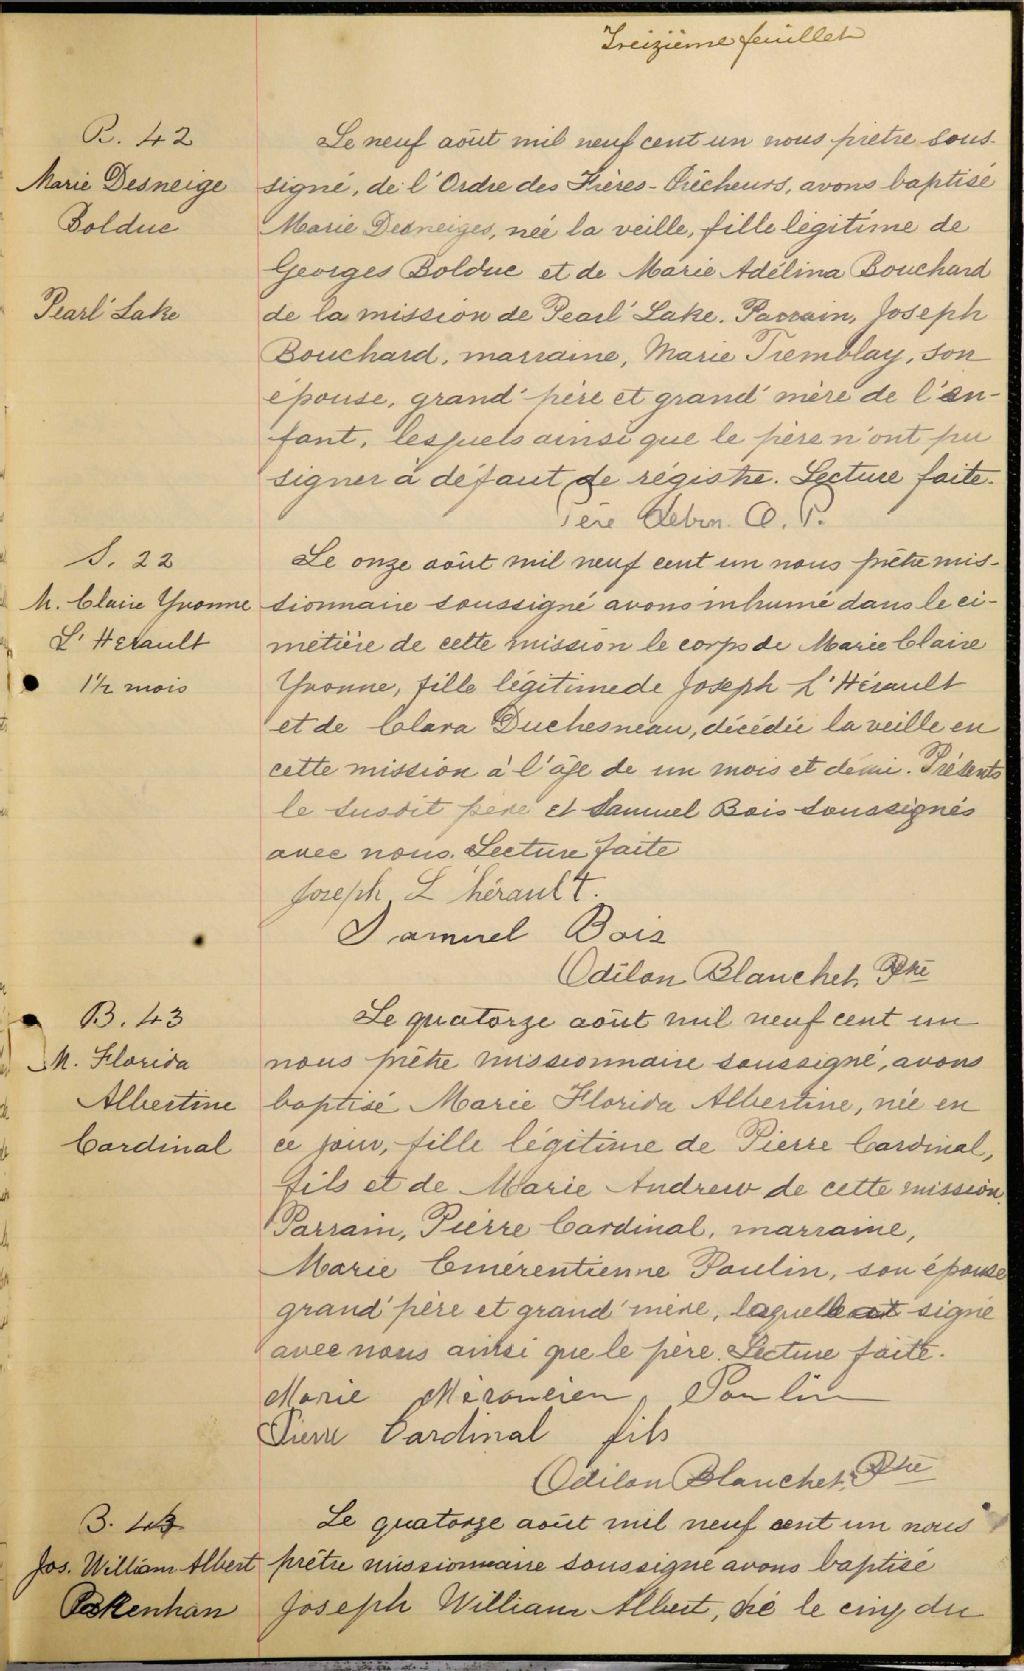 Treizième feuillet
B. 42
Marie Desneige
Bolduc
Pearl Lake
Le neuf août mil neuf cent un nous prêtre sous-
signé, de l'Ordre des Frères-Prêcheurs, avons baptisé
Marie Desneiges, née la veille, fille légitime de
Georges Bolduc et de Marie Adélina Bouchard
de la mission de Pearl Lake. Parrain, Joseph
Bouchard, marraine, Marie Tremblay, son
épouse, grand'père et grand'mère de l'en-
fant, lesquels ainsi que le père n'ont pu
signer à défaut de régistre. Lecture faite.
Père O. P.
S. 22
M. Claire Yvonne
L'Hérault
1 1/2 mois
Le onze août mil neuf cent un nous prêtre mis-
sionnaire soussigné avons inhumé dans le ci-
metière de cette mission le corps de Marie Claire
Yvonne, fille légitime de Joseph L'Hérault
et de Clara Duchesneau, décédée la veille en
cette mission à l'âge de un mois et demi. Présents
le susdit père et Samuel Bois soussignés
avec nous. Lecture faite
Joseph L'hérault.
Samuel Bois
Odilon Blanchet, Ptre
B. 43
M. Florida
Albertine
Cardinal
Le quatorze août mil neuf cent un
nous prêtre missionnaire soussigné, avons
baptisé Marie Florida Albertine, née en
ce jour, fille légitime de Pierre Cardinal,
fils et de Marie Andrew de cette mission.
Parrain, Pierre Cardinal, marraine,
Marie Émérentienne Paulin, son épouse
grand'père et grand'mère, laquelle a signé
avec nous ainsi que le père. Lecture faite.
Marie Méroncien Poulin
Pierre Cardinal fils
Odilon Blanchet, Ptre
B. 43
Jos. William Albert
Pakenhan
Le quatorze août mil neuf cent un nous
prêtre missionnaire soussigné avons baptisé
Joseph William Albert, né le cinq du